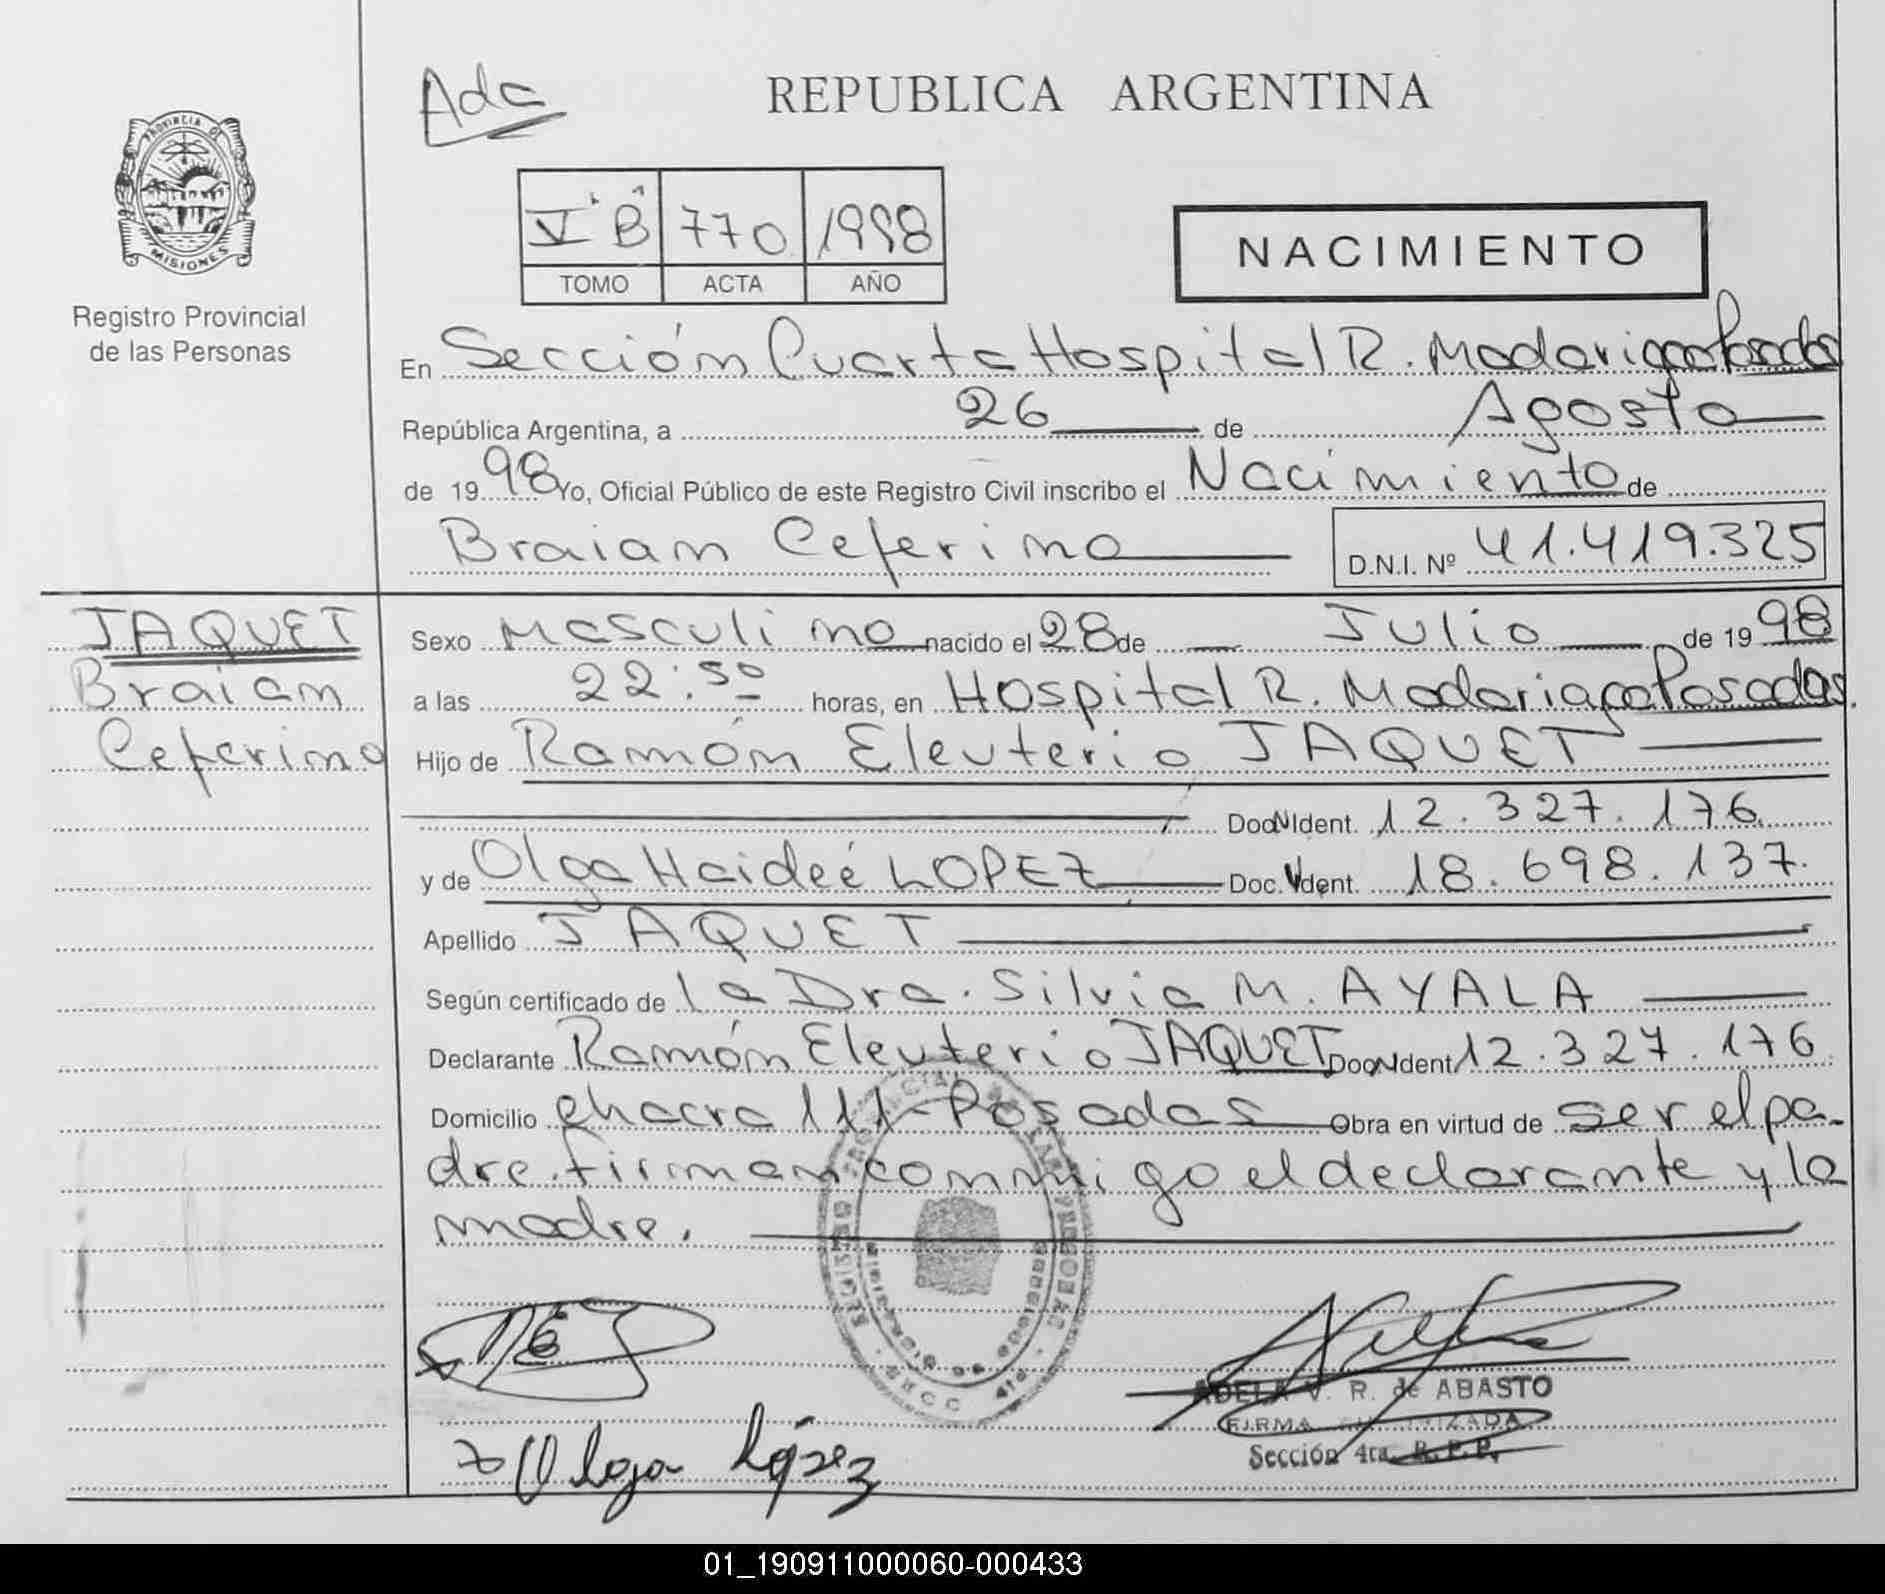 Ada
REPUBLICA ARGENTINA
PROVINCIA DE
MISIONES
Registro Provincial
de las Personas
V "B" 770 1998
TOMO ACTA AÑO
NACIMIENTO
En Sección Cuarta Hospital R. Madariaga Posadas
República Argentina, a 26 de Agosto
de 1998 Yo, Oficial Público de este Registro Civil inscribo el Nacimiento de
Braian Ceferino D.N.I. Nº 41.419.325
JAQUET
Braian
Ceferino
Sexo Masculino nacido el 28 de Julio de 1998
a las 22:50 horas, en Hospital R. Madariaga Posadas.
Hijo de Ramón Eleuterio JAQUET
Doc. Ident. 12.327.176
y de Olga Haideé LOPEZ Doc. Ident. 18.698.137.
Apellido JAQUET
Según certificado de la Dra. Silvia M. AYALA
Declarante Ramón Eleuterio JAQUET Doc. Ident. 12.327.176
Domicilio chacra 111-Posadas Obra en virtud de ser el pa-
dre. firman conmigo el declarante y la
madre.
REGISTRO PROVINCIAL DE LAS PERSONAS
ADELA V. R. de ABASTO
FIRMA AUTORIZADA
Sección 4ta. R.P.P.
Olga López
01_190911000060-000433